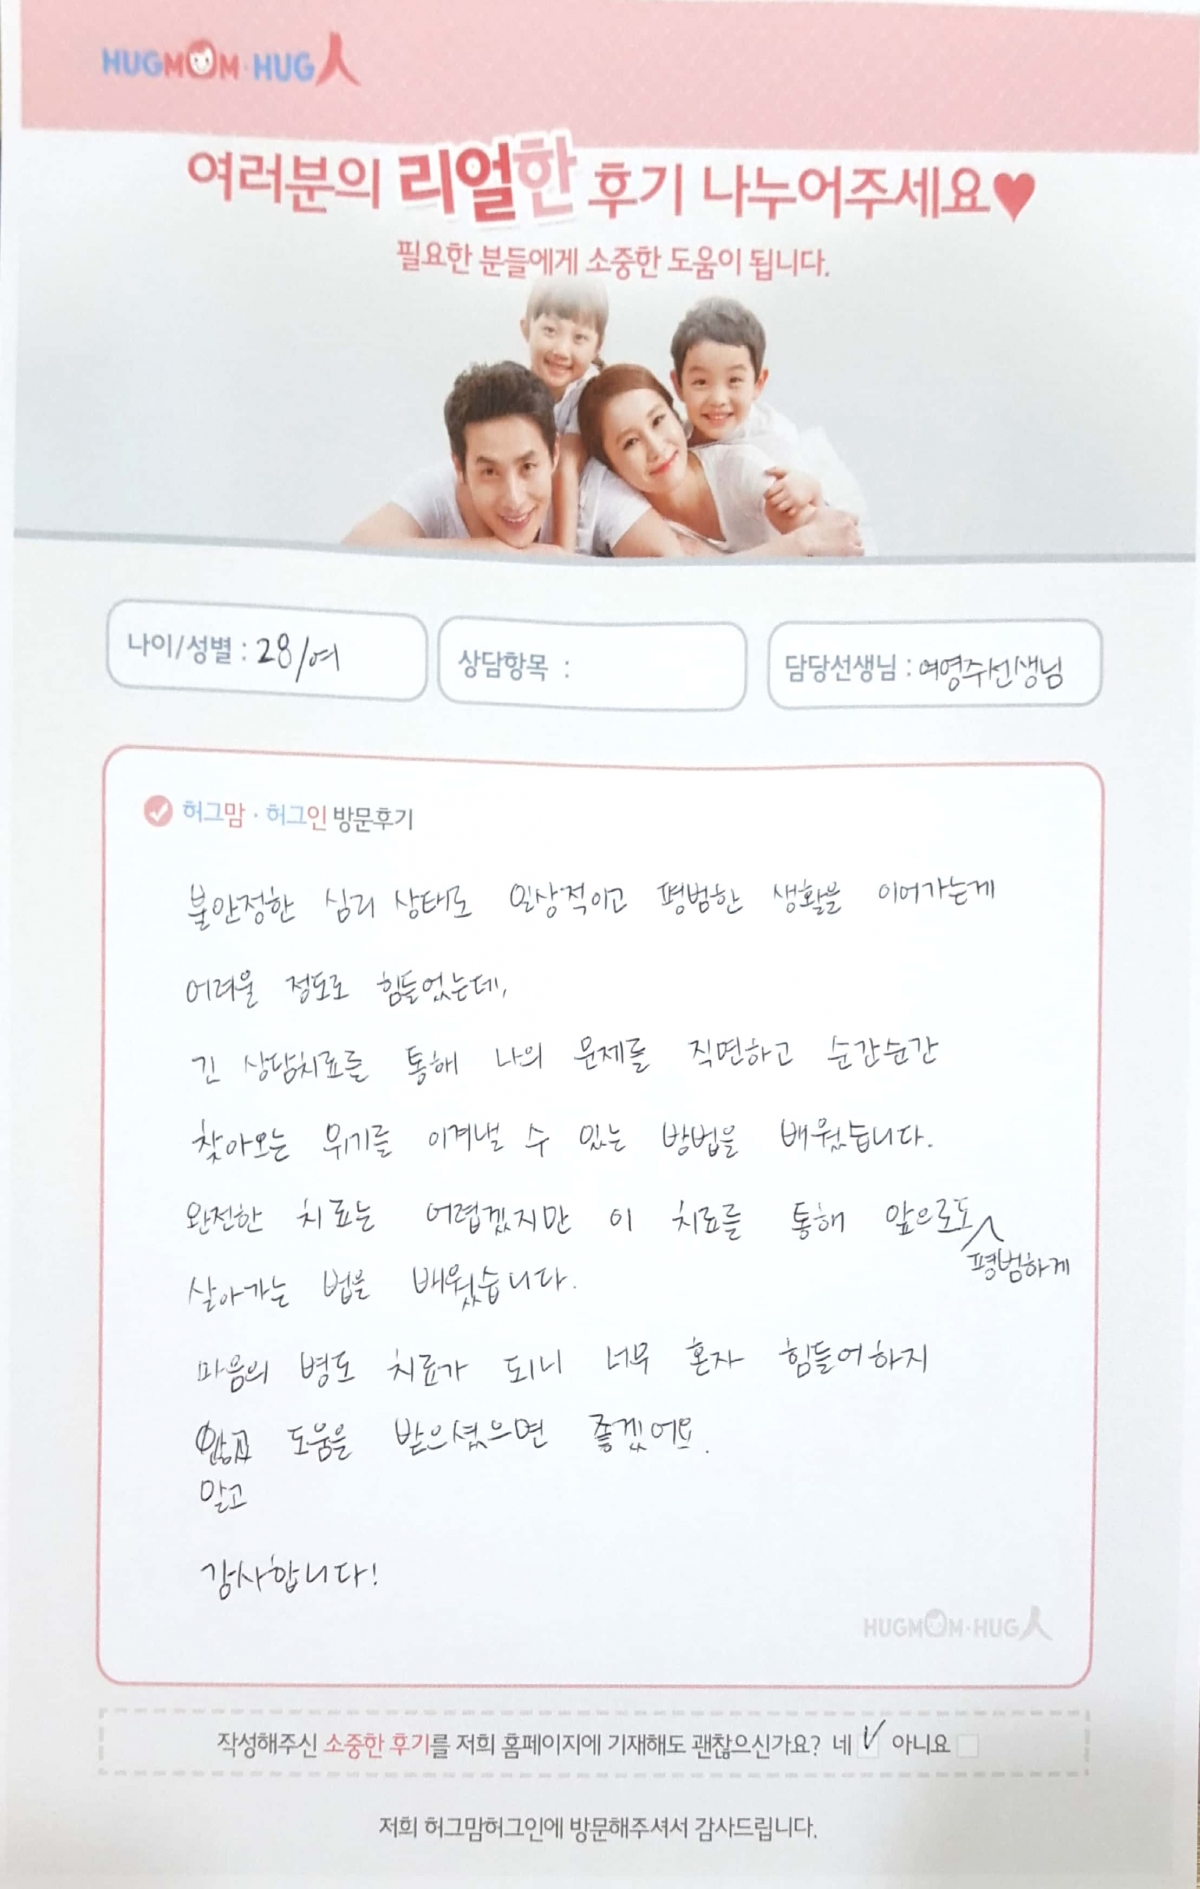 HUGMOM·HUG人
여러분의 리얼한 후기 나누어주세요♥
필요한 분들에게 소중한 도움이 됩니다.
나이/성별 : 28/여
상담항목 :
담당선생님 : 여영주선생님
허그맘·허그인 방문후기
불안정한 심리 상태로 일상적이고 평범한 생활을 이어가는게
어려울 정도로 힘들었는데,
긴 상담치료를 통해 나의 문제를 직면하고 순간순간
찾아오는 위기를 이겨낼 수 있는 방법을 배웠습니다.
완전한 치료는 어렵겠지만 이 치료를 통해 앞으로도
평범하게
살아가는 법을 배웠습니다.
마음의 병도 치료가 되니 너무 혼자 힘들어하지
않고 도움을 받으셨으면 좋겠어요.
말고
감사합니다!
HUGMOM·HUG人
작성해주신 소중한 후기를 저희 홈페이지에 기재해도 괜찮으신가요? 네 ✓ 아니요
저희 허그맘허그인에 방문해주셔서 감사드립니다.